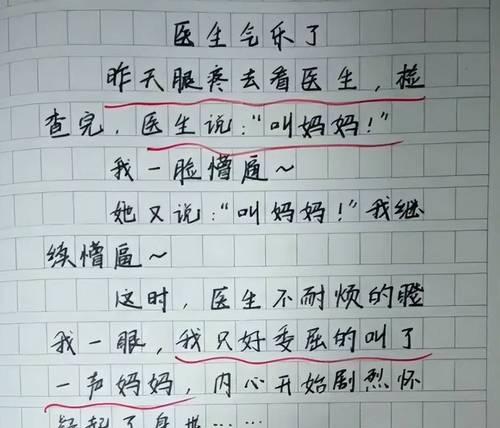 医生气乐了
昨天眼疼去看医生，检
查完，医生说:“叫妈妈！”
我一脸懵逼~
她又说:“叫妈妈！”我继
续懵逼~
这时，医生不耐烦的瞪
我一眼，我只好委屈的叫了
一声妈妈，内心开始剧烈怀
疑起了身世……